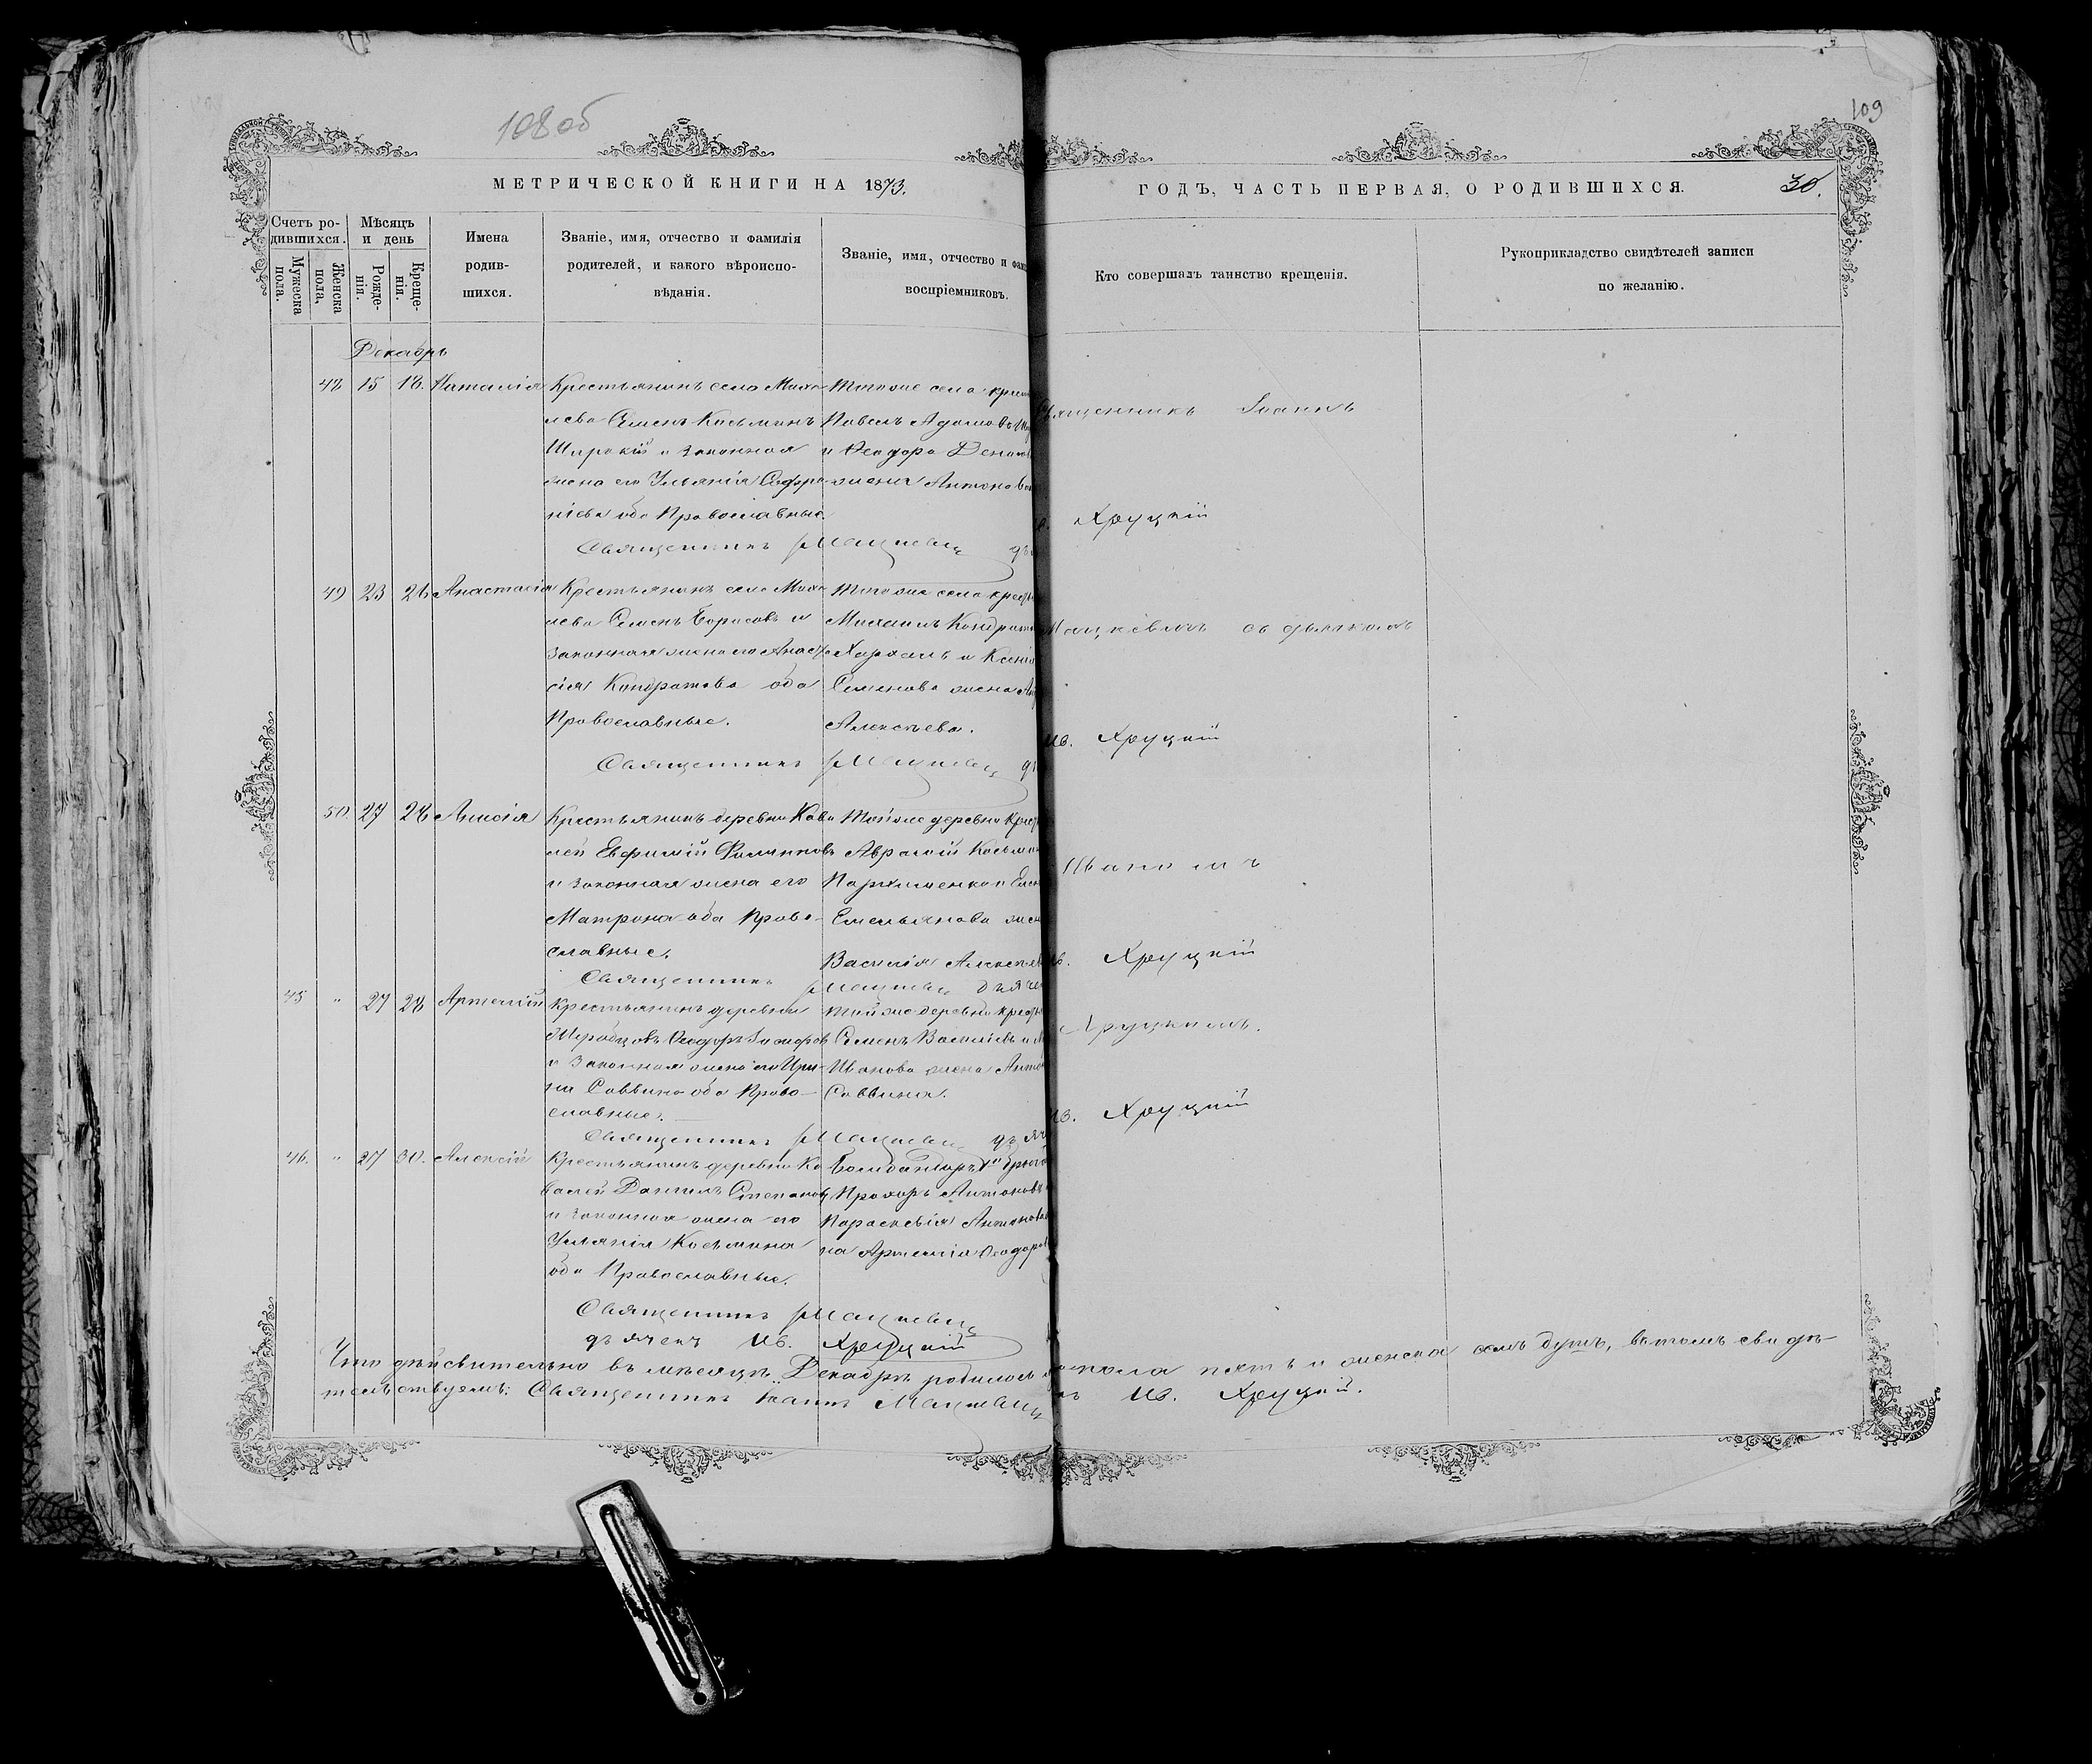 108 об
109
МЕТРИЧЕСКОЙ КНИГИ НА 1873.
ГОДЪ, ЧАСТЬ ПЕРВАЯ, О РОДИВШИХСЯ.
30.
Счетъ ро-
дившихся.
Мужеска
пола.
Женска
пола,
Мѣсяцъ
и день
Рожде-
нія.
Креще-
нія.
Имена
родив-
шихся.
Званіе, имя, отчество и фамилія
родителей, и какого вѣроиспо-
вѣданія.
Званіе, имя, отчество и фам
воспріемниковъ.
Кто совершалъ таинство крещенія.
Рукоприкладство свидѣтелей записи
по желанію.
Декабрь
48 15 18. Наталія
Крестьянинъ села Миха-
лева Семенъ Косьминъ
Широкій и законная
жена его Ульянія Софро-
ніева оба Православные.
Тогоже села крест
Павелъ Адамовъ
и Ѳеодора
жена Антонова
Священникъ Іоаннъ
Священникъ Мацкевич
Хруцкій
49 23 26 Анастасія
Крестьянинъ села Миха
лева Семенъ Борисовъ и
законная жена его Анаст
сія Кондратова оба
Православные.
Тогоже села крест
Михаилъ Кондрат
Ксенія
Семенова жена
Алексѣева.
Мацкевичъ съ дьячкомъ
Священникъ Мацкевич
Ив. Хруцкій
50 27 28
Крестьянинъ деревни Кова
лей Евфимій Филиповъ
и законная жена его
Матрона оба Право-
славные.
Тойже деревни крест
Аврамій Косьмин
Пархименко и Елен
Емельянова жен
Василія Алексѣев
Иваномъ
Священникъ Мацкевич дьяче
Хруцкій
45 " 27 28 Артемій
Крестьянинъ деревни
Ѳеодоръ
и законная жена его Ири-
на Саввина оба Право-
славные.
Тойже деревни крест
Семенъ Василіевъ и
Иванова жена Анто
Саввина.
Хруцкимъ.
Священникъ Мацкевич дьяч
Ив. Хруцкій
46. " 27 30. Алексій
Крестьянинъ деревни Ко
валей Даніилъ Степановъ
и законная жена его
Ульянія Косьмина
оба Православные.
Прохоръ Антоновъ
Параскевія Антонова
на Артемія Ѳеодоров
Священникъ Мацкевич
дьячекъ Ив. Хруцкій
Что дѣйствительно въ мѣсяцѣ Декабрѣ родилось пола пять и женска семь душъ, въ томъ свидѣ-
тельствуемъ: Священникъ Іоаннъ Мацкевич Ив. Хруцкій.